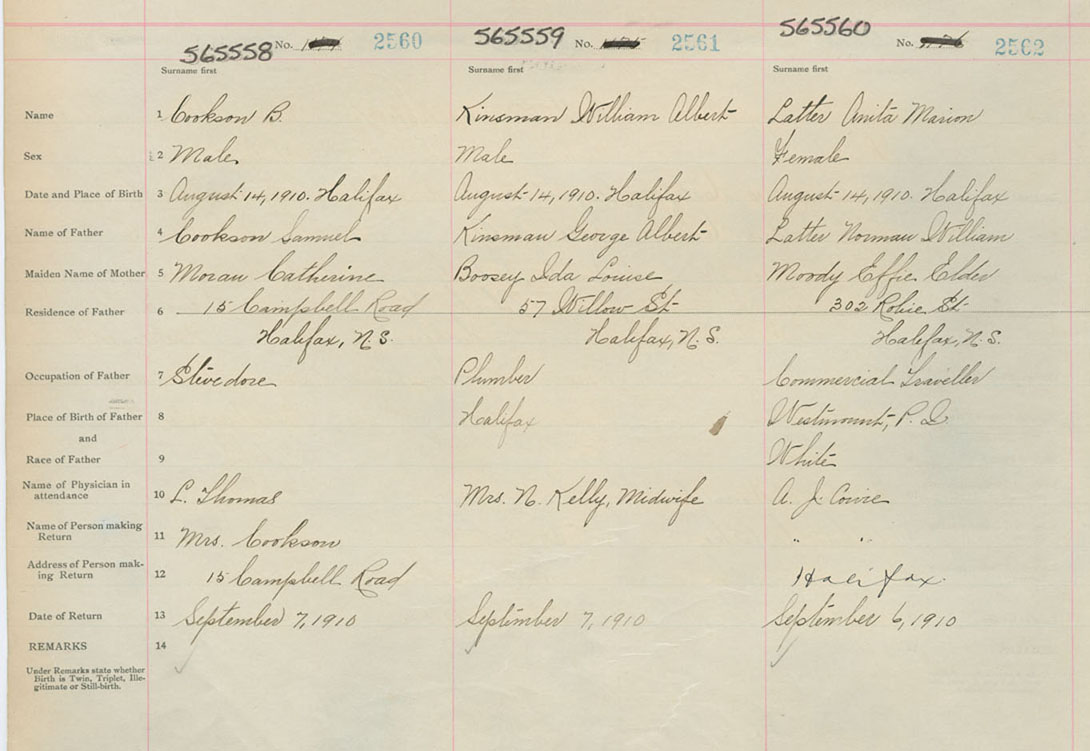 565558 No. 2560 565559 No. 2561 565560 No. 2562
Surname first Surname first Surname first
Name 1 Cookson B. Kinsman William Albert Latter Anita Marion
Sex 2 Male Male Female
Date and Place of Birth 3 August 14, 1910. Halifax August 14, 1910. Halifax August 14, 1910. Halifax
Name of Father 4 Cookson Samuel Kinsman George Albert Latter Norman William
Maiden Name of Mother 5 Moran Catherine Boosey Ida Louise Moody Effie Elder
Residence of Father 6 15 Campbell Road 57 Willow St 302 Robie St
Halifax, N.S. Halifax, N.S. Halifax, N.S.
Occupation of Father 7 Stevedore Plumber Commercial Traveller
Place of Birth of Father 8 Halifax Westmount, P. Q
and
Race of Father 9 White
Name of Physician in
attendance 10 L. Thomas Mrs. N. Kelly, Midwife A. J. Cowie
Name of Person making
Return 11 Mrs. Cookson " "
Address of Person mak-
ing Return 12 15 Campbell Road Halifax.
Date of Return 13 September 7, 1910 September 7, 1910 September 6, 1910
REMARKS 14
Under Remarks state whether
Birth is Twin, Triplet, Ille-
gitimate or Still-birth.